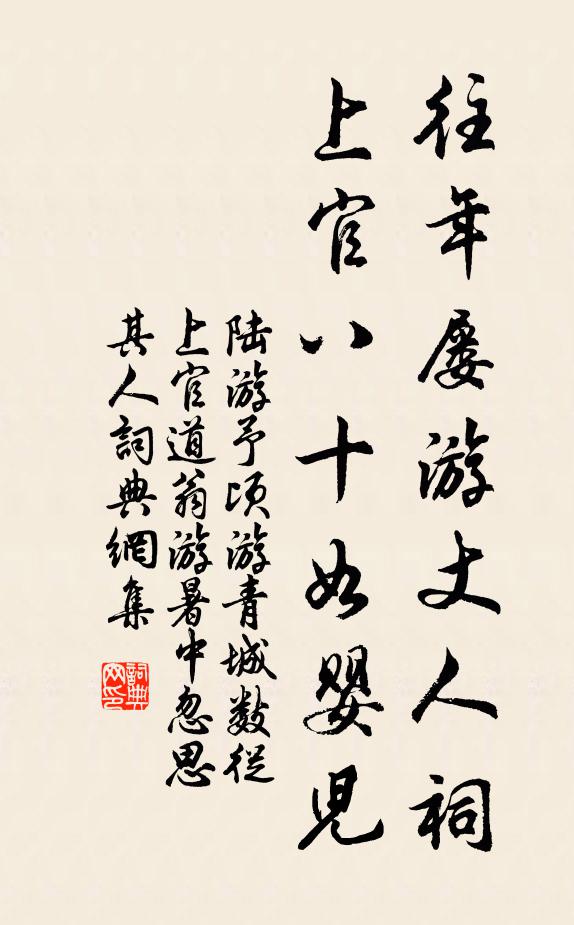 往年屡游丈人祠
上官八十如婴儿
陆游予顷游青城数从
上官道翁游暑中忽思
其人詞典網集
詞典
网印